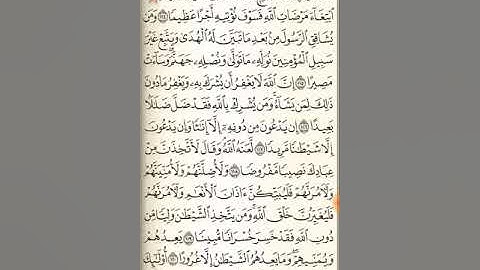 ٱبۡتِغَآءَ مَرۡضَاتِ ٱللَّهِ فَسَوۡفَ نُؤۡتِيهِ أَجۡرًا عَظِيمٗا ١١٤ وَمَن
يُشَاقِقِ ٱلرَّسُولَ مِنۢ بَعۡدِ مَا تَبَيَّنَ لَهُ ٱلۡهُدَىٰ وَيَتَّبِعۡ غَيۡرَ
سَبِيلِ ٱلۡمُؤۡمِنِينَ نُوَلِّهِۦ مَا تَوَلَّىٰ وَنُصۡلِهِۦ جَهَنَّمَۖ وَسَآءَتۡ
مَصِيرًا ١١٥ إِنَّ ٱللَّهَ لَا يَغۡفِرُ أَن يُشۡرَكَ بِهِۦ وَيَغۡفِرُ مَا دُونَ
ذَٰلِكَ لِمَن يَشَآءُۚ وَمَن يُشۡرِكۡ بِٱللَّهِ فَقَدۡ ضَلَّ ضَلَٰلَۢا
بَعِيدًا ١١٦ إِن يَدۡعُونَ مِن دُونِهِۦٓ إِلَّآ إِنَٰثٗا وَإِن يَدۡعُونَ
إِلَّا شَيۡطَٰنٗا مَّرِيدٗا ١١٧ لَّعَنَهُ ٱللَّهُۘ وَقَالَ لَأَتَّخِذَنَّ مِنۡ
عِبَادِكَ نَصِيبٗا مَّفۡرُوضٗا ١١٨ وَلَأُضِلَّنَّهُمۡ وَلَأُمَنِّيَنَّهُمۡ
وَلَأٓمُرَنَّهُمۡ فَلَيُبَتِّكُنَّ ءَاذَانَ ٱلۡأَنۡعَٰمِ وَلَأٓمُرَنَّهُمۡ
فَلَيُغَيِّرُنَّ خَلۡقَ ٱللَّهِۚ وَمَن يَتَّخِذِ ٱلشَّيۡطَٰنَ وَلِيّٗا مِّن
دُونِ ٱللَّهِ فَقَدۡ خَسِرَ خُسۡرَانٗا مُّبِينٗا ١١٩ يَعِدُهُمۡ
وَيُمَنِّيهِمۡۖ وَمَا يَعِدُهُمُ ٱلشَّيۡطَٰنُ إِلَّا غُرُورًا ١٢٠ أُوْلَٰٓئِكَ